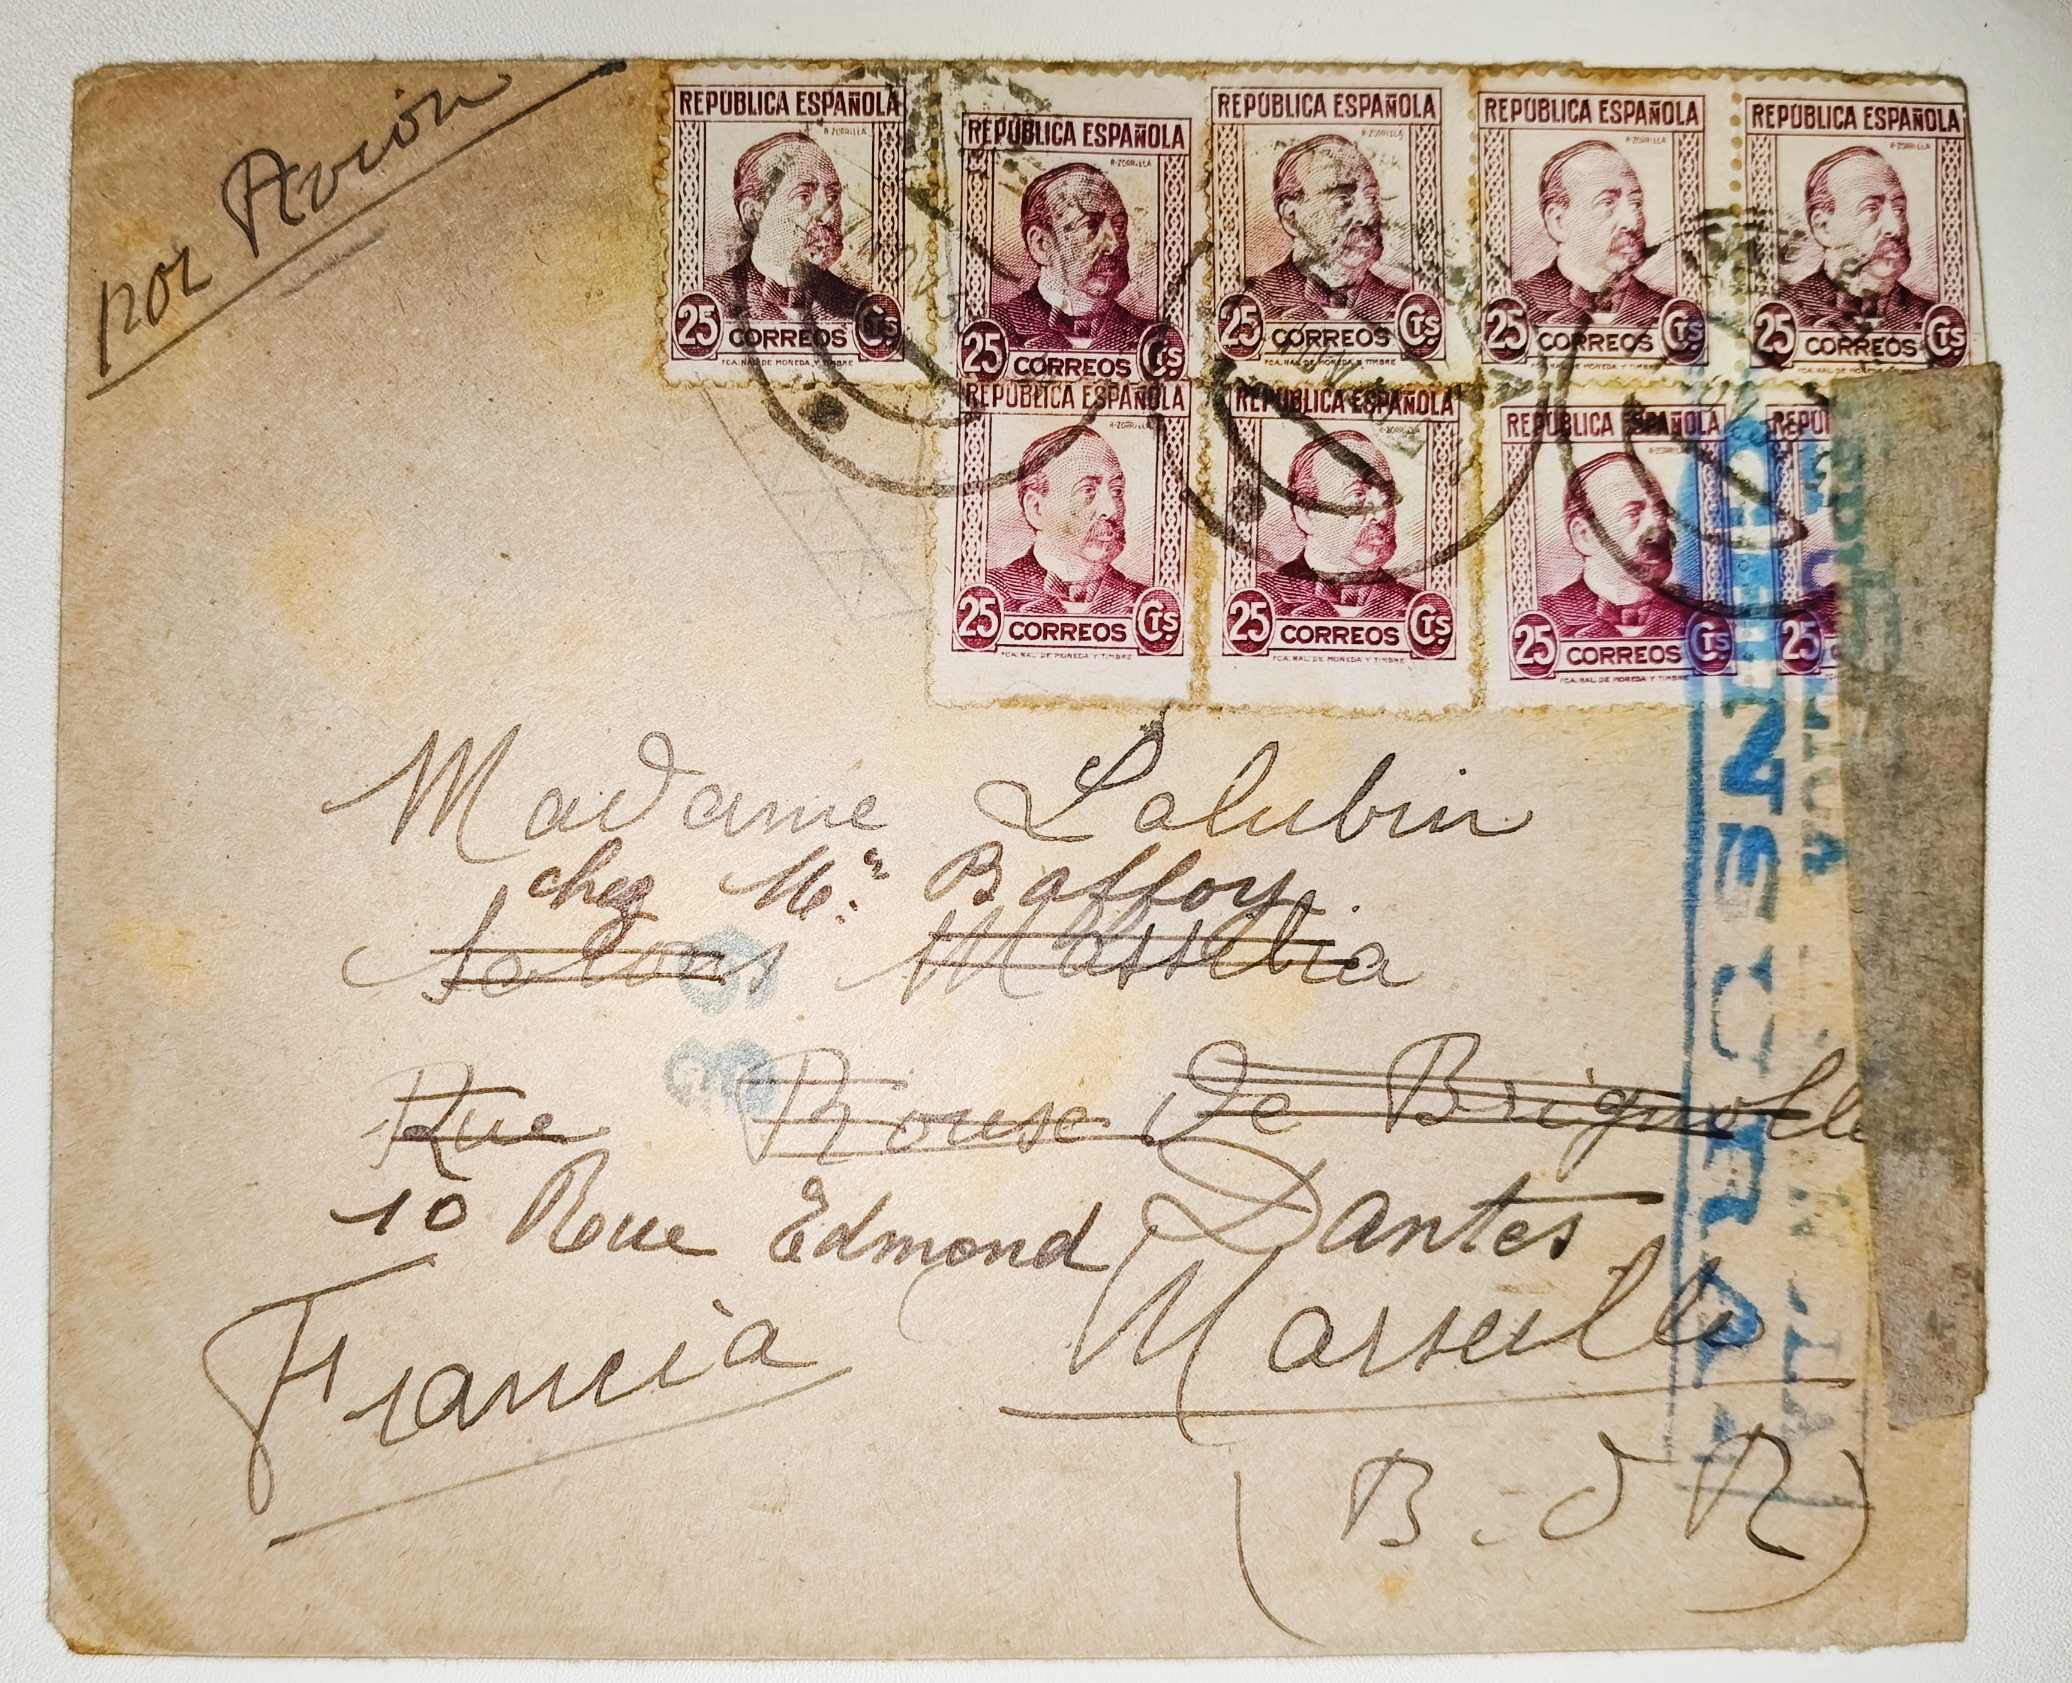 por Avión
REPÚBLICA ESPAÑOLA REPÚBLICA ESPAÑOLA REPÚBLICA ESPAÑOLA REPÚBLICA ESPAÑOLA REPÚBLICA ESPAÑOLA
R-ZORRILLA R-ZORRILLA R-ZORRILLA R-ZORRILLA R-ZORRILLA
25 CORREOS CTS 25 CORREOS CTS 25 CORREOS CTS 25 CORREOS CTS 25 CORREOS CTS
FCA. NAL DE MONEDA Y TIMBRE FCA. NAL DE MONEDA Y TIMBRE FCA. NAL DE MONEDA Y TIMBRE FCA. NAL DE MONEDA Y TIMBRE
REPÚBLICA ESPAÑOLA REPÚBLICA ESPAÑOLA REPÚBLICA ESPAÑOLA REPÚ
R-ZORRILLA R-ZORRILLA R-ZORRILLA
25 CORREOS CTS. 25 CORREOS CTS. 25 CORREOS CTS 25
FCA. NAL DE MONEDA Y TIMBRE FCA. NAL DE MONEDA Y TIMBRE FCA. NAL DE MONEDA Y TIMBRE
Madame Lalubin
chez Mr. Baffoy.
Salons Massilia
Rue Rouse de Brignolle
10 Rue Edmond Dantes
Marseille
Francia
(B. d R)